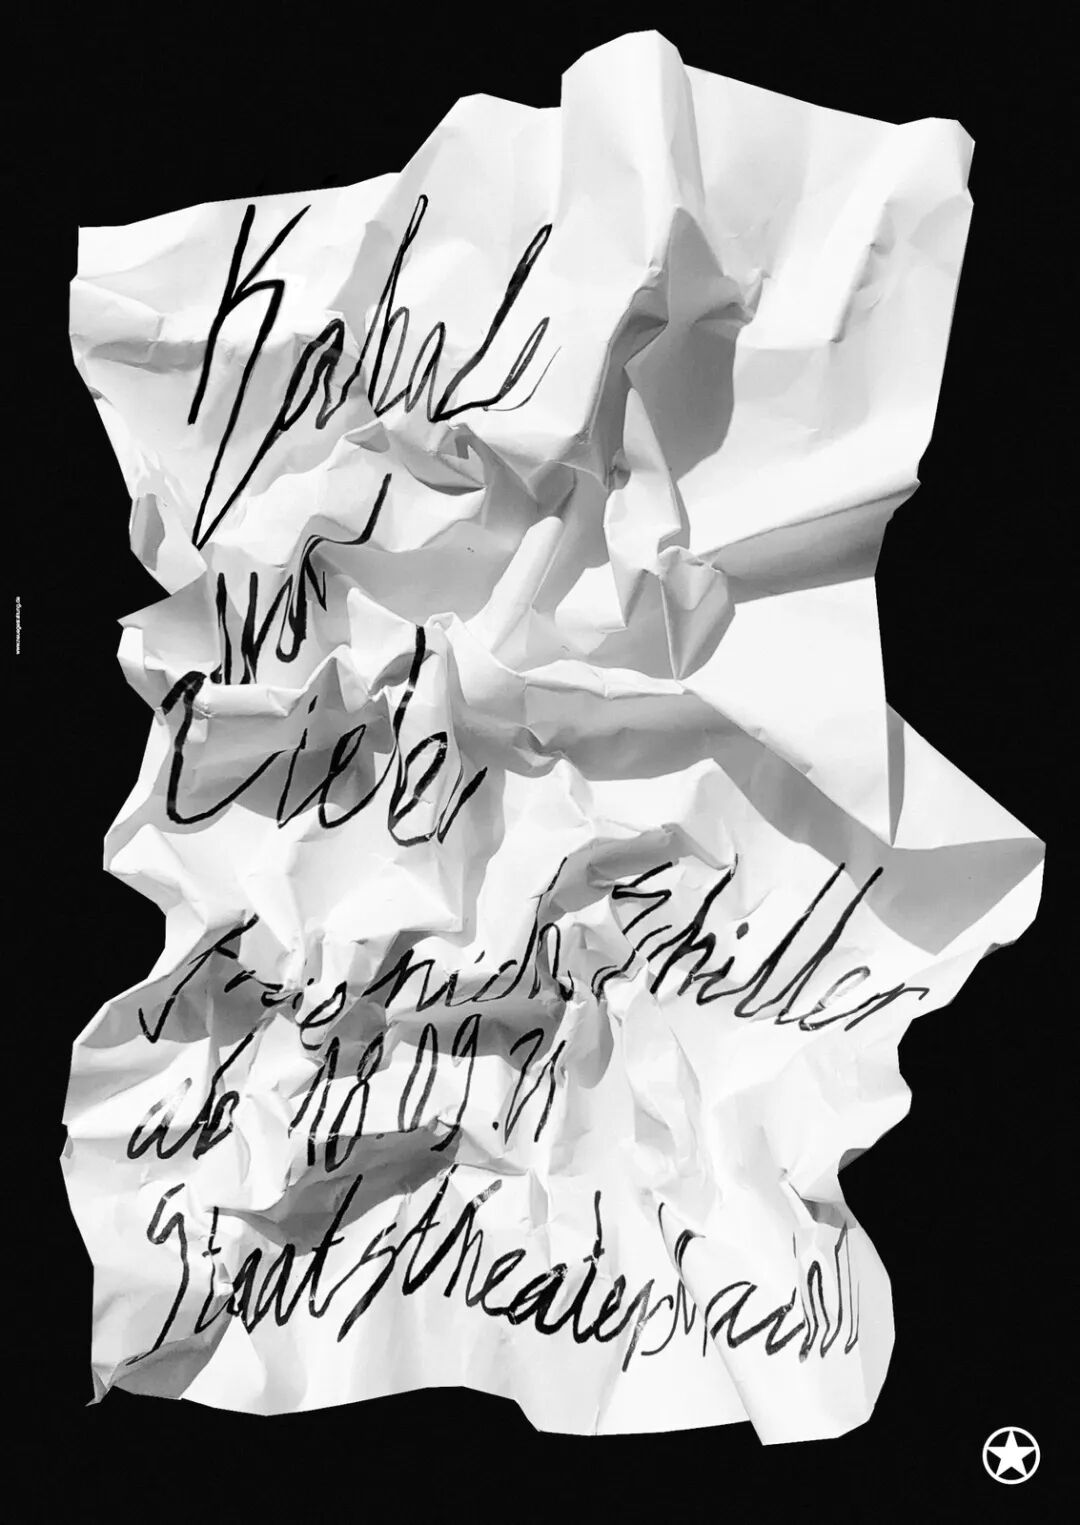 Kabale
und
Liebe
Friedrich Schiller
ab 18.09.21
Staatstheater Mainz
www.neuegestaltung.de